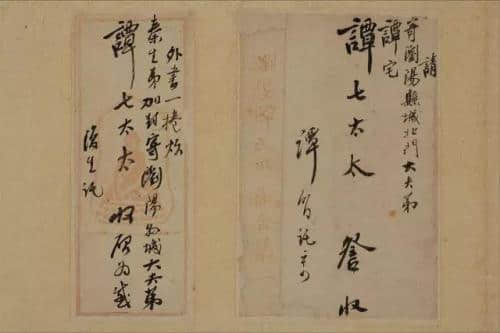 請
寄瀏陽縣城北門大夫第
譚宅
譚七太太 詧收
譚 託
外書一捲煩
秦生弟加封寄瀏陽城大夫第
譚七太太 收為感
復生託